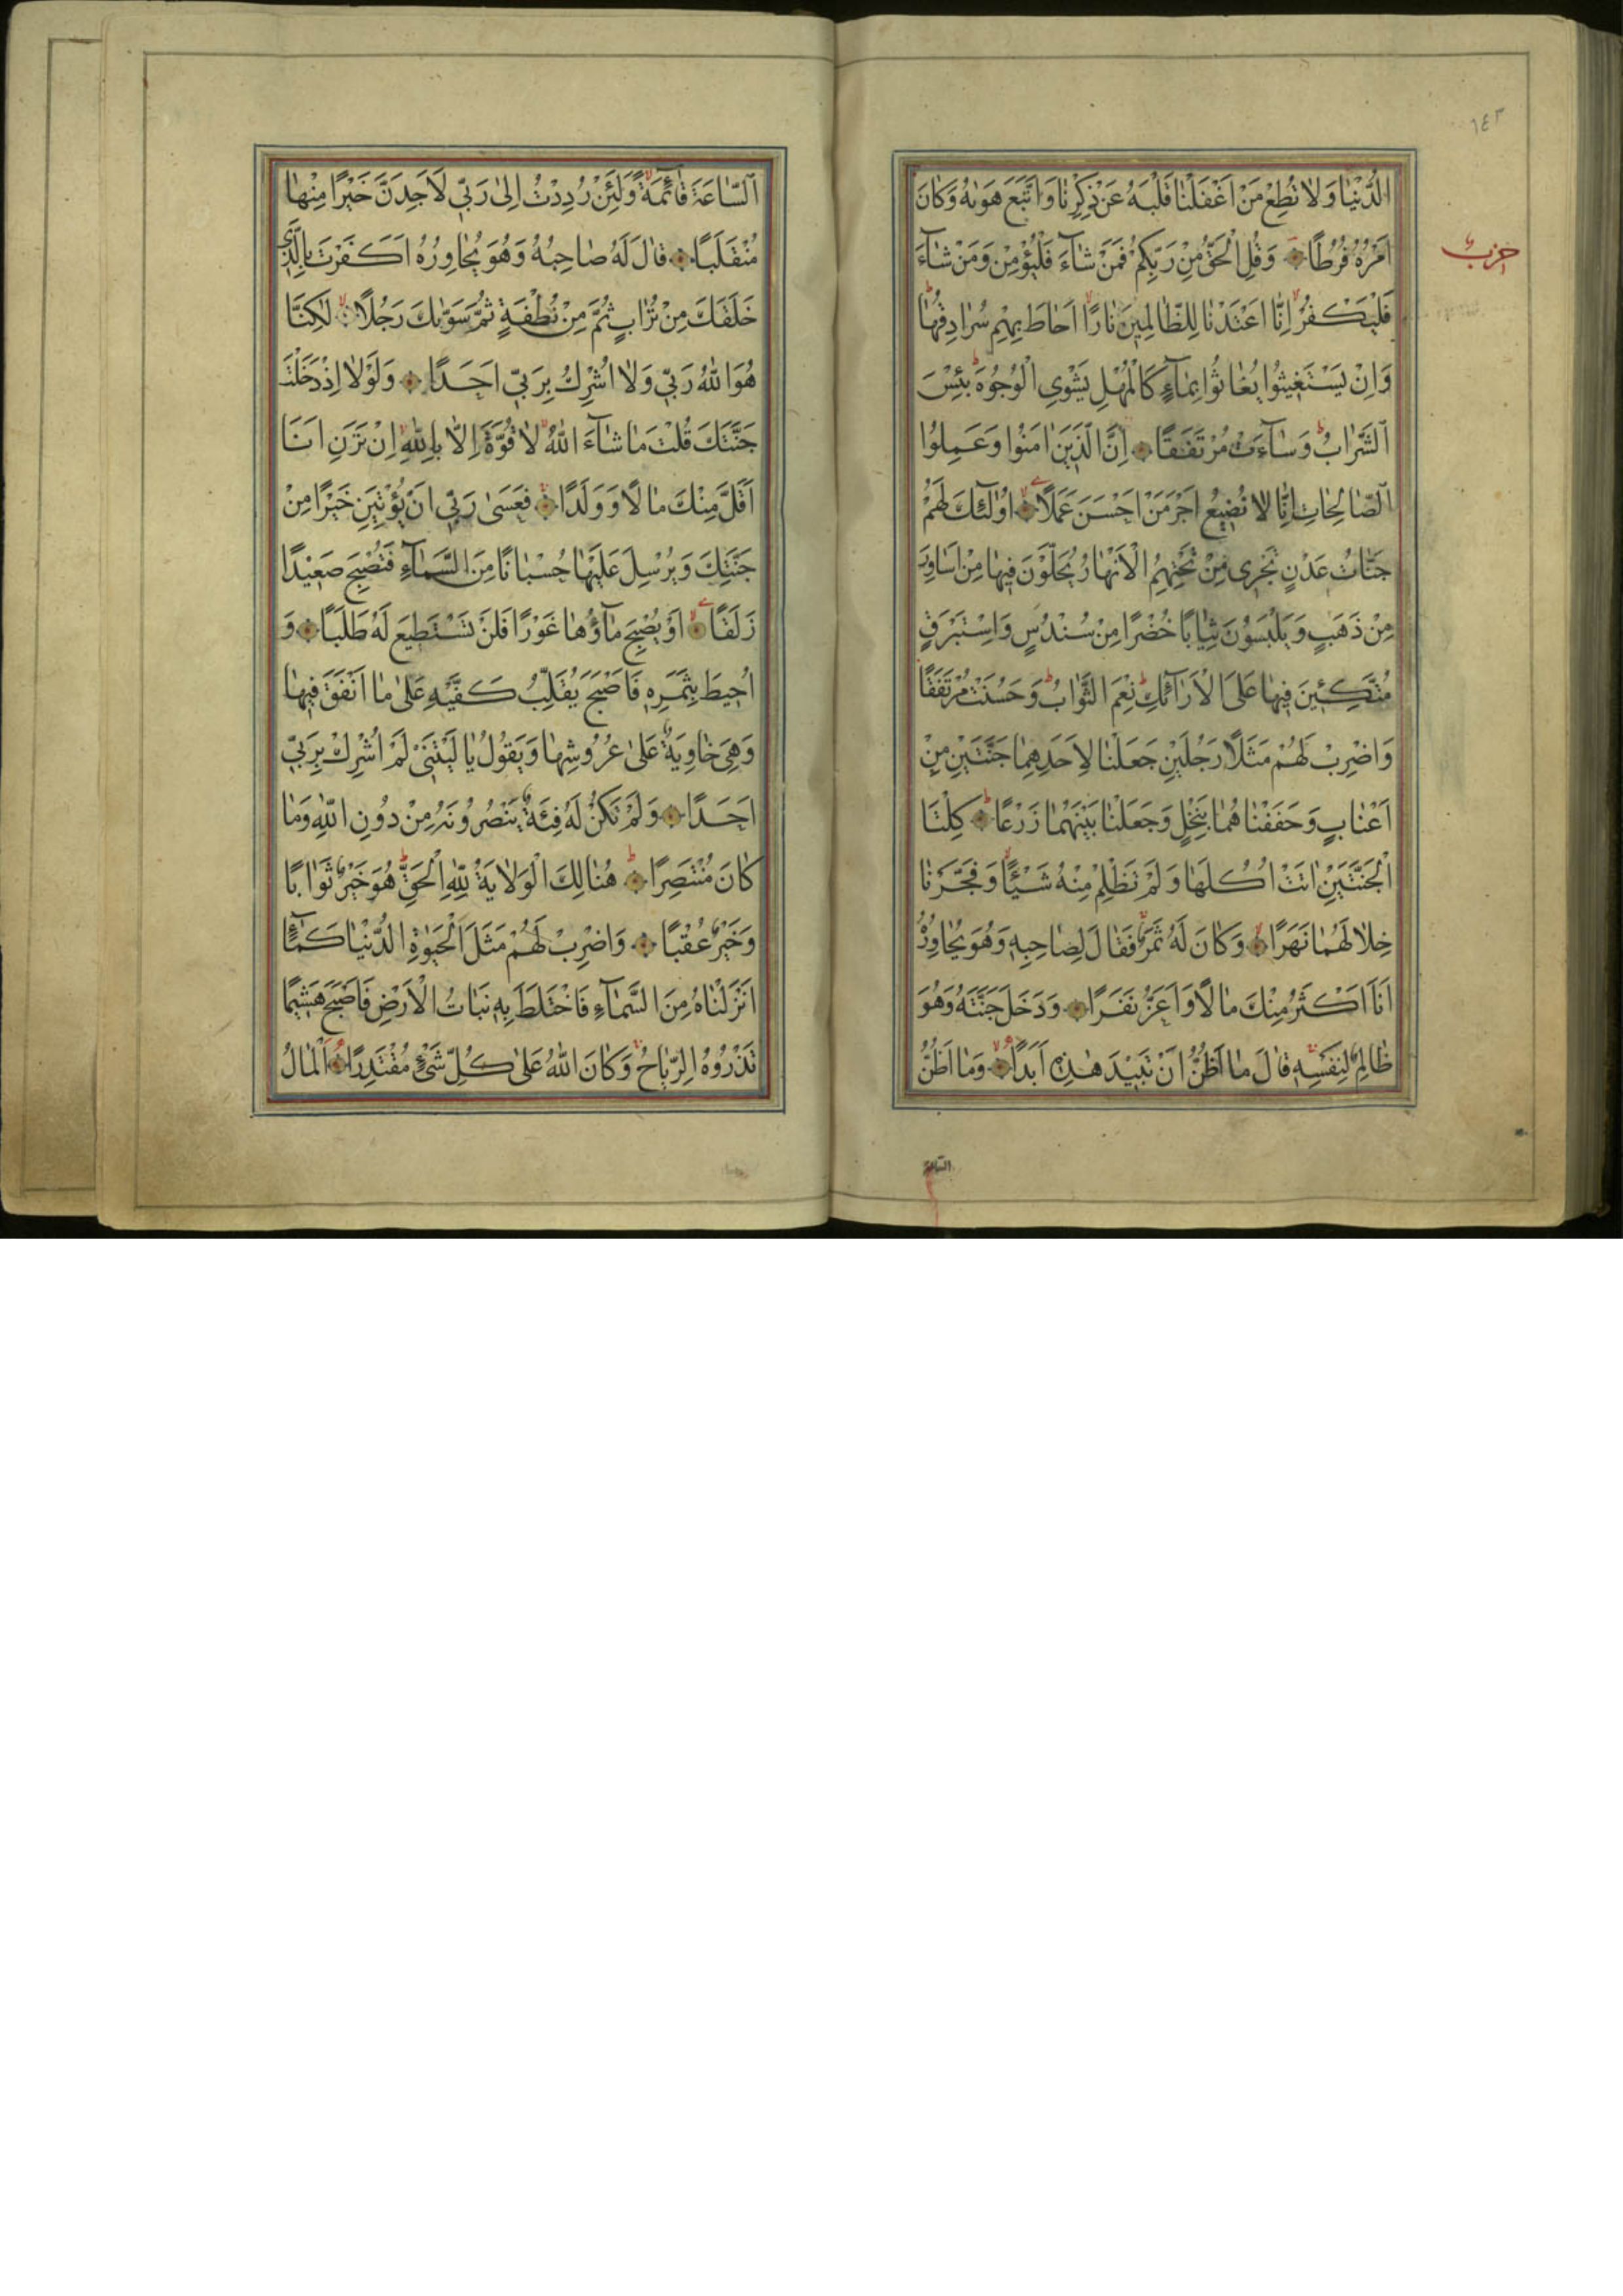 ١٤٣
الدُّنْيَا وَلَا تُطِعْ مَنْ اَغْفَلْنَا قَلْبَهُ عَنْ ذِكْرِنَا وَاتَّبَعَ هَوٰيهُ وَكَانَ
اَمْرُهُ فُرُطًا وَقُلِ الْحَقُّ مِنْ رَبِّكُمْ فَمَنْ شَآءَ فَلْيُؤْمِنْ وَمَنْ شَآءَ
حزب
فَلْيَكْفُرْ اِنَّا اَعْتَدْنَا لِلظَّالِمِينَ نَارًا اَحَاطَ بِهِمْ سُرَادِقُهَا
وَاِنْ يَسْتَغِيثُوا يُغَاثُوا بِمَآءٍ كَالْمُهْلِ يَشْوِي الْوُجُوهَ بِئْسَ
الشَّرَابُ وَسَآءَتْ مُرْتَفَقًا اِنَّ الَّذِينَ اٰمَنُوا وَعَمِلُوا
الصَّالِحَاتِ اِنَّا لَا نُضِيعُ اَجْرَ مَنْ اَحْسَنَ عَمَلًا اُولٰئِكَ لَهُمْ
جَنَّاتُ عَدْنٍ تَجْرِي مِنْ تَحْتِهِمُ الْاَنْهَارُ يُحَلَّوْنَ فِيهَا مِنْ اَسَاوِرَ
مِنْ ذَهَبٍ وَيَلْبَسُونَ ثِيَابًا خُضْرًا مِنْ سُنْدُسٍ وَاِسْتَبْرَقٍ
مُتَّكِئِينَ فِيهَا عَلَى الْاَرَآئِكِ نِعْمَ الثَّوَابُ وَحَسُنَتْ مُرْتَفَقًا
وَاضْرِبْ لَهُمْ مَثَلًا رَجُلَيْنِ جَعَلْنَا لِاَحَدِهِمَا جَنَّتَيْنِ مِنْ
اَعْنَابٍ وَحَفَفْنَاهُمَا بِنَخْلٍ وَجَعَلْنَا بَيْنَهُمَا زَرْعًا كِلْتَا
الْجَنَّتَيْنِ اٰتَتْ اُكُلَهَا وَلَمْ تَظْلِمْ مِنْهُ شَيْئًا وَفَجَّرْنَا
خِلَالَهُمَا نَهَرًا وَكَانَ لَهُ ثَمَرٌ فَقَالَ لِصَاحِبِهِ وَهُوَ يُحَاوِرُهُ
اَنَا اَكْثَرُ مِنْكَ مَالًا وَاَعَزُّ نَفَرًا وَدَخَلَ جَنَّتَهُ وَهُوَ
ظَالِمٌ لِنَفْسِهِ قَالَ مَا اَظُنُّ اَنْ تَبِيدَ هٰذِهِ اَبَدًا وَمَا اَظُنُّ
الساعة
السَّاعَةَ قَآئِمَةً وَلَئِنْ رُدِدْتُ اِلٰى رَبِّي لَاَجِدَنَّ خَيْرًا مِنْهَا
مُنْقَلَبًا قَالَ لَهُ صَاحِبُهُ وَهُوَ يُحَاوِرُهُ اَكَفَرْتَ بِالَّذِي
خَلَقَكَ مِنْ تُرَابٍ ثُمَّ مِنْ نُطْفَةٍ ثُمَّ سَوّٰيكَ رَجُلًا لٰكِنَّا
هُوَ اللهُ رَبِّي وَلَا اُشْرِكُ بِرَبِّي اَحَدًا وَلَوْلَا اِذْ دَخَلْتَ
جَنَّتَكَ قُلْتَ مَا شَآءَ اللهُ لَا قُوَّةَ اِلَّا بِاللهِ اِنْ تَرَنِ اَنَا
اَقَلَّ مِنْكَ مَالًا وَوَلَدًا فَعَسٰى رَبِّي اَنْ يُؤْتِيَنِ خَيْرًا مِنْ
جَنَّتِكَ وَيُرْسِلَ عَلَيْهَا حُسْبَانًا مِنَ السَّمَآءِ فَتُصْبِحَ صَعِيدًا
زَلَقًا اَوْ يُصْبِحَ مَآؤُهَا غَوْرًا فَلَنْ تَسْتَطِيعَ لَهُ طَلَبًا وَ
اُحِيطَ بِثَمَرِهِ فَاَصْبَحَ يُقَلِّبُ كَفَّيْهِ عَلٰى مَا اَنْفَقَ فِيهَا
وَهِيَ خَاوِيَةٌ عَلٰى عُرُوشِهَا وَيَقُولُ يَا لَيْتَنِي لَمْ اُشْرِكْ بِرَبِّي
اَحَدًا وَلَمْ تَكُنْ لَهُ فِئَةٌ يَنْصُرُونَهُ مِنْ دُونِ اللهِ وَمَا
كَانَ مُنْتَصِرًا هُنَالِكَ الْوَلَايَةُ لِلهِ الْحَقِّ هُوَ خَيْرٌ ثَوَابًا
وَخَيْرٌ عُقْبًا وَاضْرِبْ لَهُمْ مَثَلَ الْحَيٰوةِ الدُّنْيَا كَمَآءٍ
اَنْزَلْنَاهُ مِنَ السَّمَآءِ فَاخْتَلَطَ بِهِ نَبَاتُ الْاَرْضِ فَاَصْبَحَ هَشِيمًا
تَذْرُوهُ الرِّيَاحُ وَكَانَ اللهُ عَلٰى كُلِّ شَيْءٍ مُقْتَدِرًا اَلْمَالُ